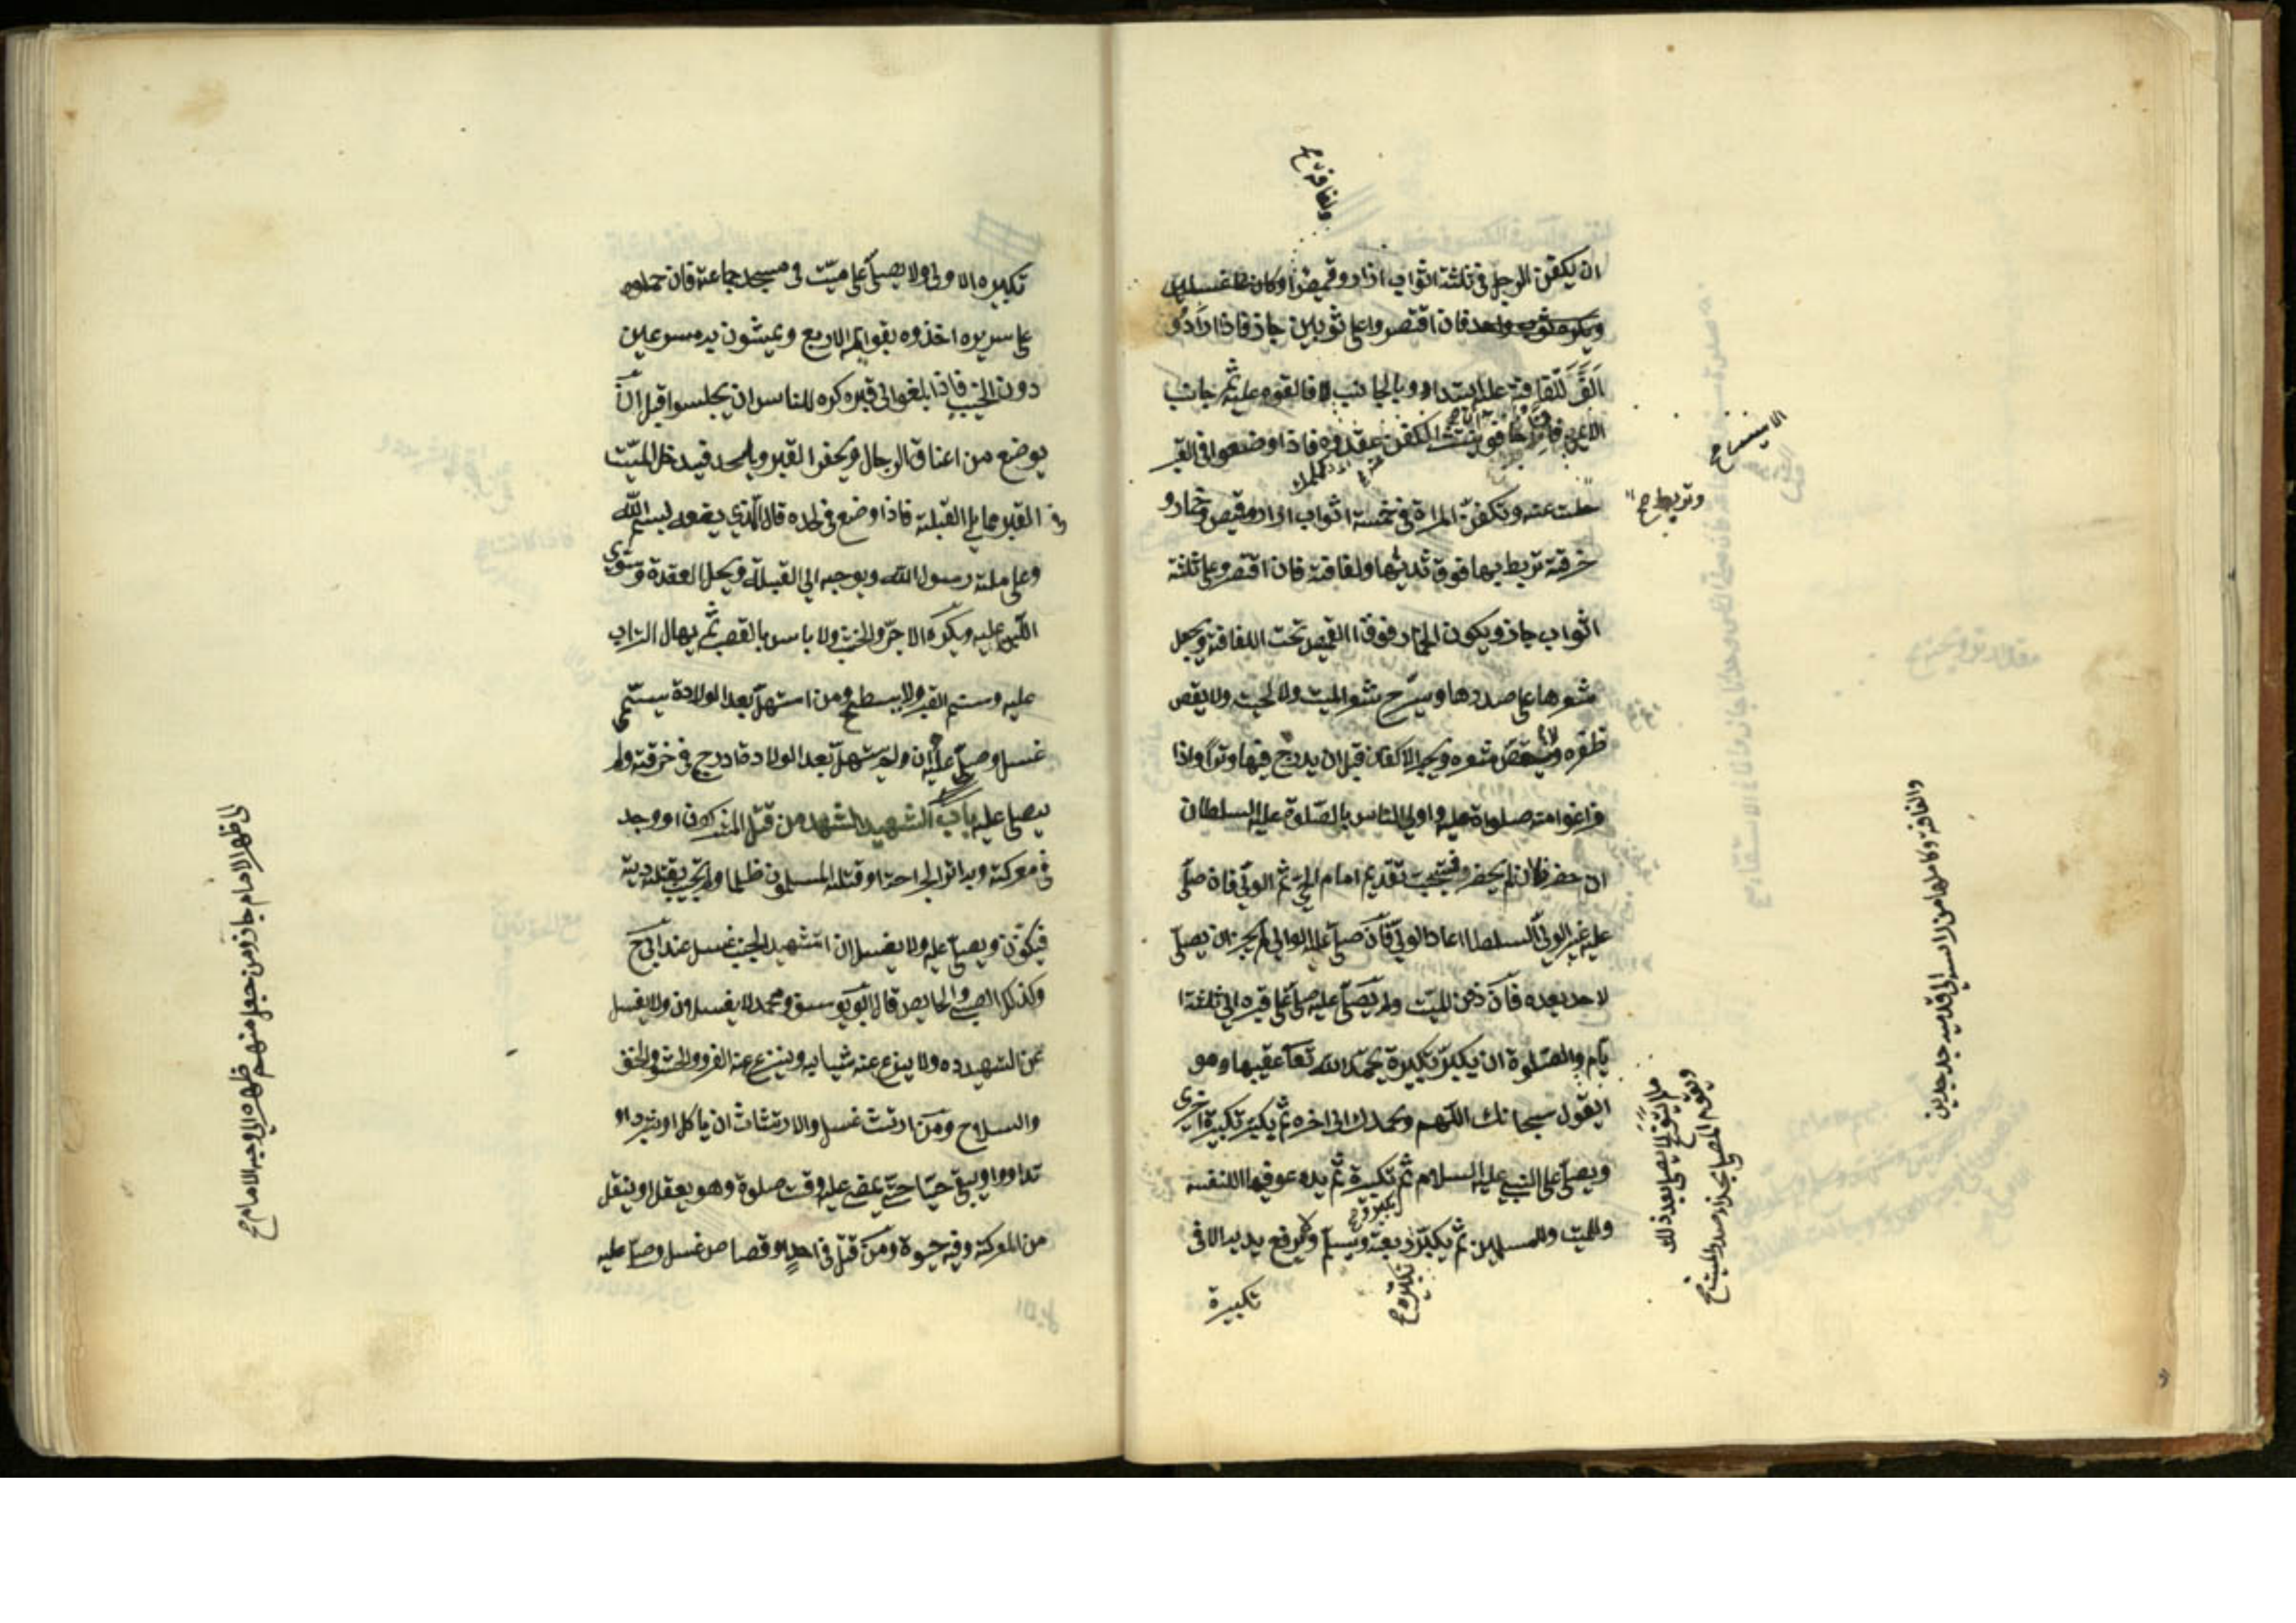 ولفافة صح
ان يكفن الرجل فى ثلثة اثواب ازار وقميص
فان اقتصروا على ثوبين جاز فاذا ارادو
الف اللفافة عليه ابتداو بالجانب فالقوه عليه ثم جانب
الايمن فان خافوا الكفن عقدوه فاذا وضعوا فى القبر
الايسر صح
حلت عنه وتكفن المراة فى خمسة اثواب ازار وقميص وخمار و
وتربط صح
خرقة تربط بها فوق ثدييها ولفافة فان اقتصروعلى ثلثة
اثواب جاز ويكون الخمار فوق القميص تحت اللفافة ويجعل
شعرها على صدرها وسرح شعر الميت ولا لحيته ولا يقص
ظفره ولا يقص شعره ويجمر الاكفان قبل ان يدرج فيها وترا واذا
فرغوا منه صلوا عليه واولى الناس بالصلوة عليه السلطان
ان حضر فان لم يحضر فيستحب تقديم امام الحى ثم الولى فان صلى
عليه غير الولى السلطان اعاد الولى فان صلى عليه الوالى لم يجز ان يصلى
لاحد بعده فان دفن الميت ولم يصلى عليه صلى على قبره الى ثلثة ا
يام والصلوة ان يكبر تكبيرة يحمد الله تعا عقيبها وهو
القول سبحانك اللهم وبحمدك الى اخره ثم يكبر تكبيرة اخرى
ويصلى على النبى عليه السلام ثم تكبيرة ثم يدعو فيها لنفسه
وللميت والمسلمين ثم يكبر رابعة ويسلم ولا يرفع يديه الا فى
تكبيرة صح
تكبيرة
ولا يصلى بعد ذلك
ويقوم المصلى بحذاء صدر الميت صح
واللفافة وكاملها من راسه الى قدميه جديدين
تكبيره الاولى ولا يصلى على ميت فى مسجد جماعة فان حملوه
على سريره اخذوه بقوائمه الاربع ويمشون به مسرعين
دون الخبب فاذا بلغوا الى قبره كره للناس ان يجلسوا قبل ان
يوضع من اعناق الرجال ويحفر القبر ويلحد فيدخل الميت
القبر مما يلى القبلة فاذا وضع فى لحده قال الذى يضعه بسم الله
وعلى ملة رسول الله ويوجه الى القبلة ويحل العقدة وسوى
اللبن عليه ويكره الاجر والخشب ولا باس بالقصب ثم يهال التراب
عليه وسنم القبر ولا يسطح ومن استهل بعد الولادة يسمى
غسل وصلى عليه ان ولم يستهل بعد الولادة ادرج فى خرقة ولم
يصلى عليه باب الشهيد الشهيد من قتل المشركون او وجد
فى معركة وبه اثر الجراحة او قتله المسلمون ظلما ولم تجب بقتله دية
فيكفن ويصلى عليه ولا يغسل ان استشهد الجنب غسل عند ابى ح
وكذلك الصبى والحايض قال ابو يوسف ومحمد لا يغسلان ولا يغسل
عن الشهيد دمه ولا ينزع عنه ثيابه وينزع عنه الفرو والحشو والخف
والسلاح ومن ارتث غسل والارتثاث ان ياكل او يشرب او
تداووا او يبقى حيا حتى يمضى عليه وقت صلوة وهو يعقل او ينقل
من المعركة وفيه حيوة ومن قتل فى حد او قصاص غسل وصلى عليه
الى ظهر الامام جاز ومن جعل منهم ظهره الى وجه الامام صح